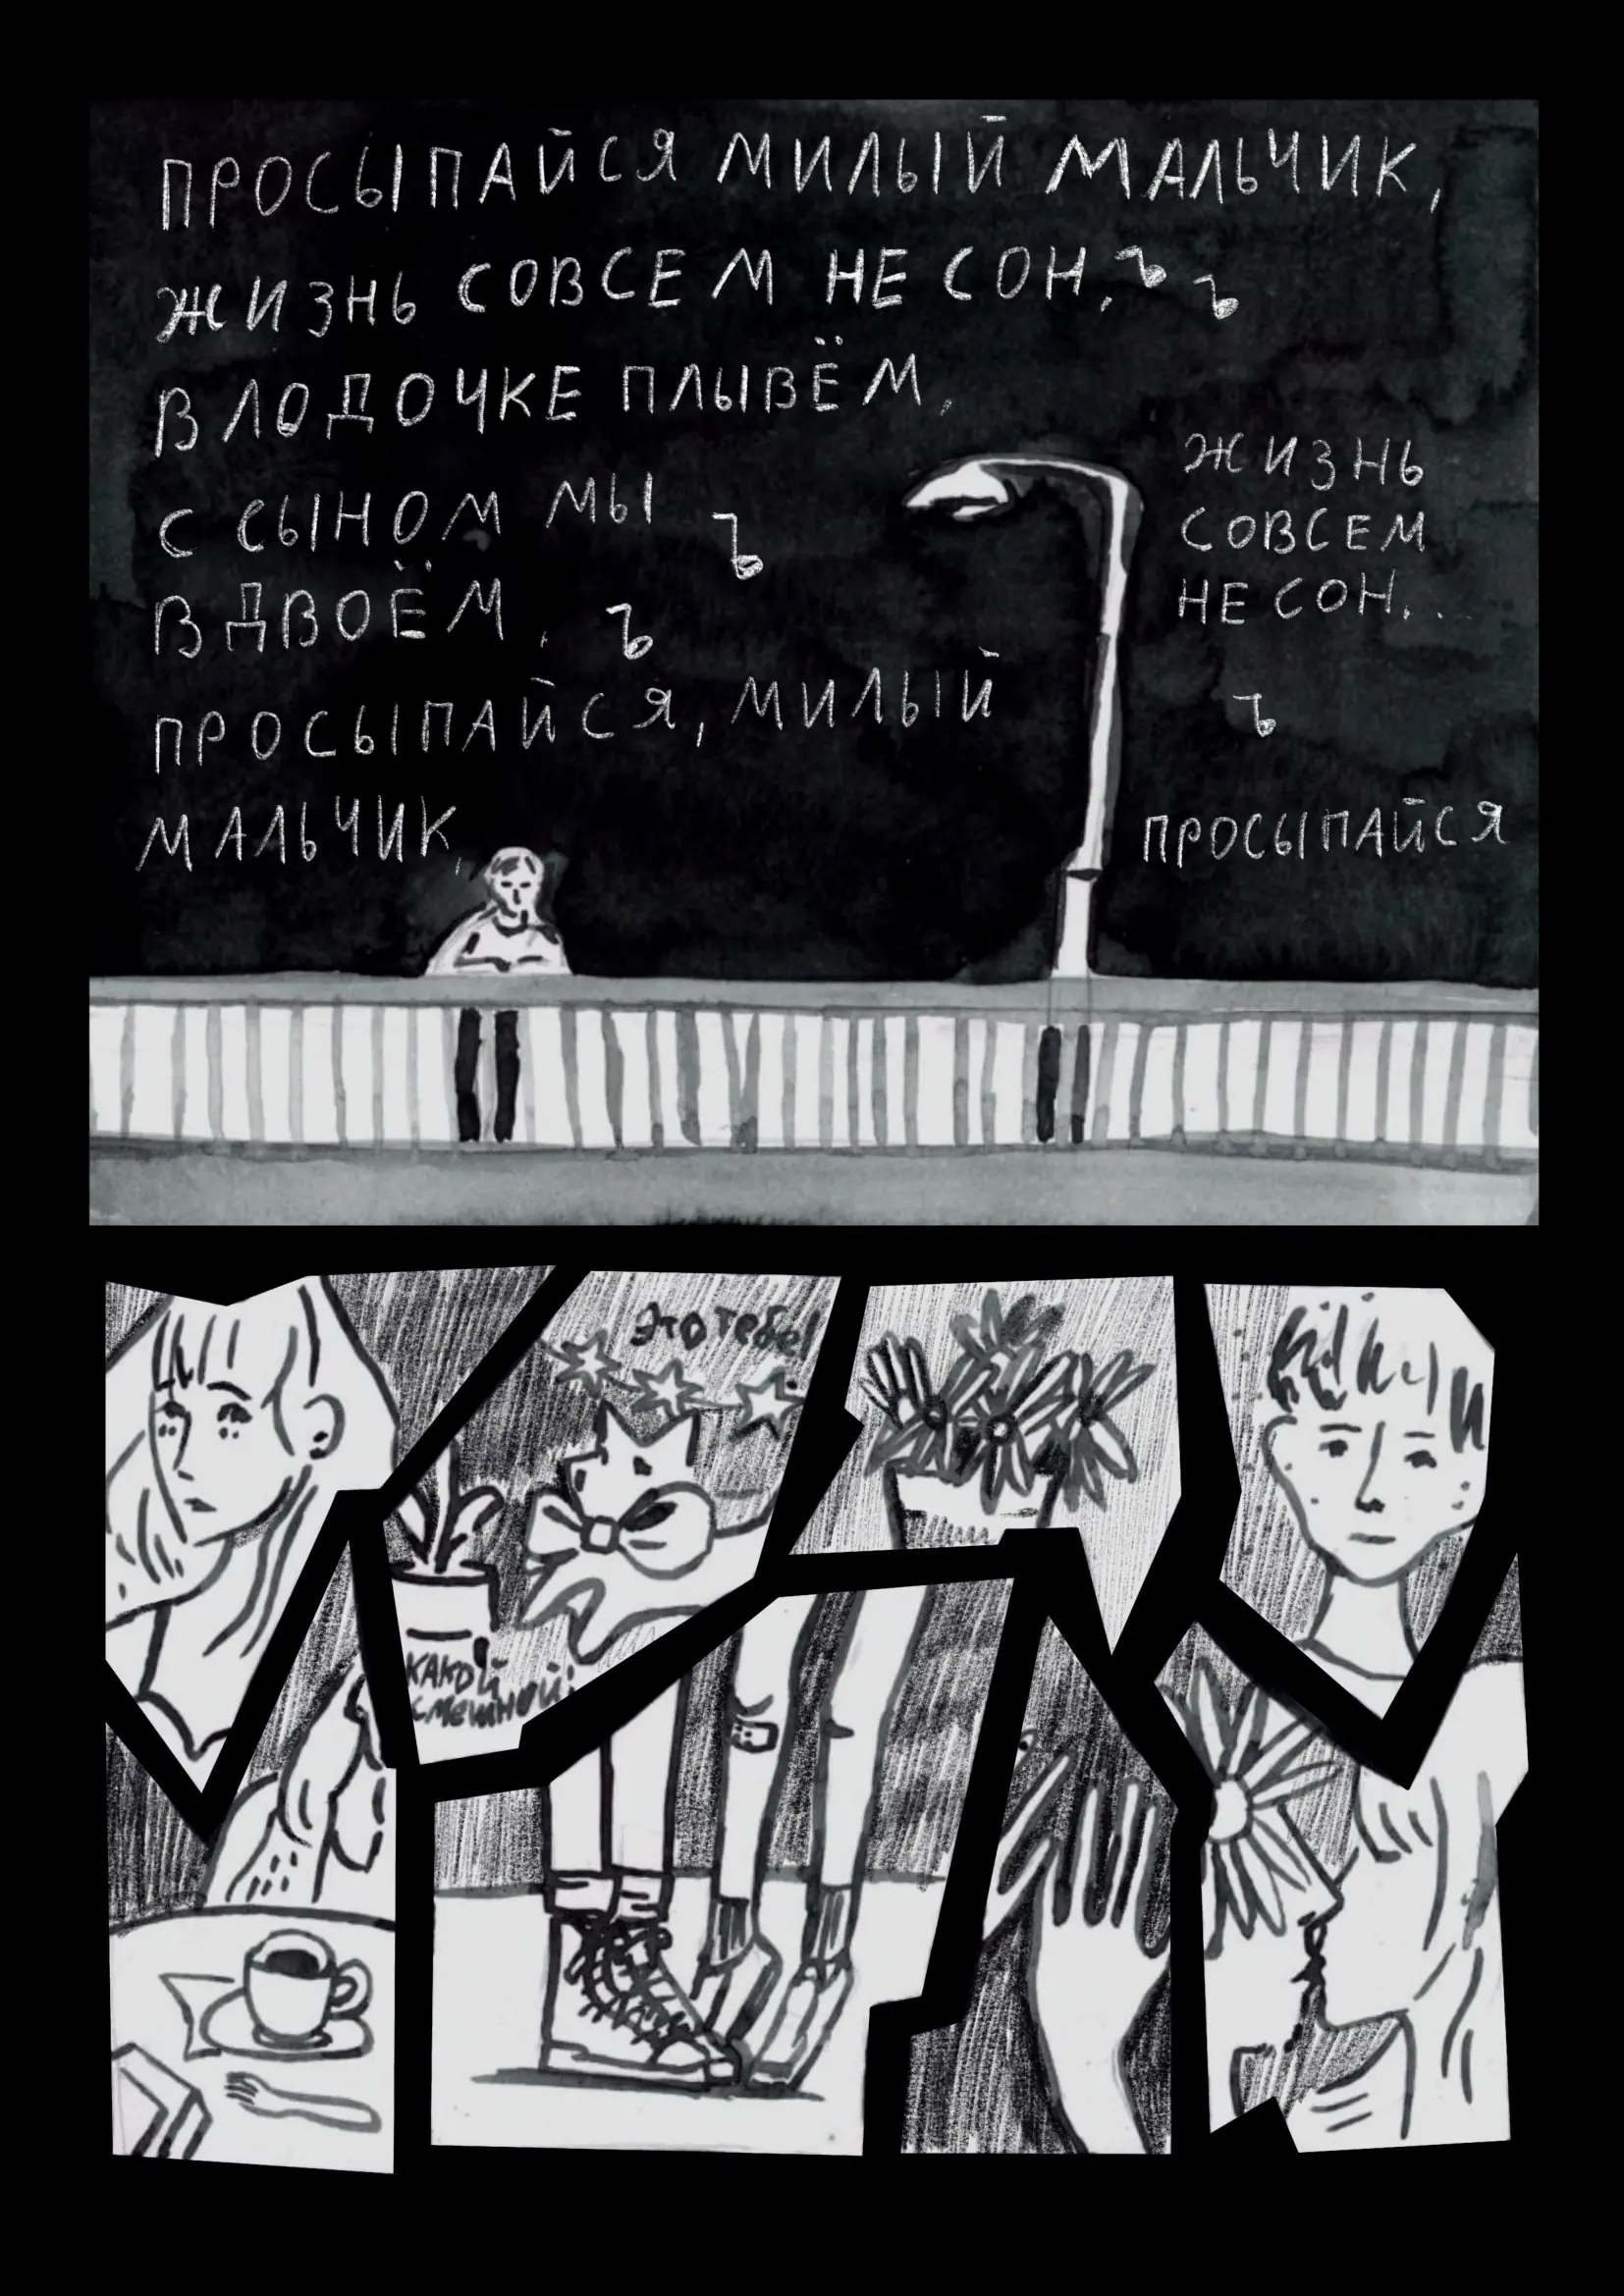 ПРОСЫПАЙСЯ МИЛЫЙ МАЛЬЧИК,
ЖИЗНЬ СОВСЕМ НЕ СОН.
В ЛОДОЧКЕ ПЛЫВЁМ,
С СЫНОМ МЫ
ВДВОЁМ.
ПРОСЫПАЙСЯ, МИЛЫЙ
МАЛЬЧИК,
ЖИЗНЬ
СОВСЕМ
НЕ СОН...
ПРОСЫПАЙСЯ
Это тебе!
КАКОЙ
СМЕШНОЙ!